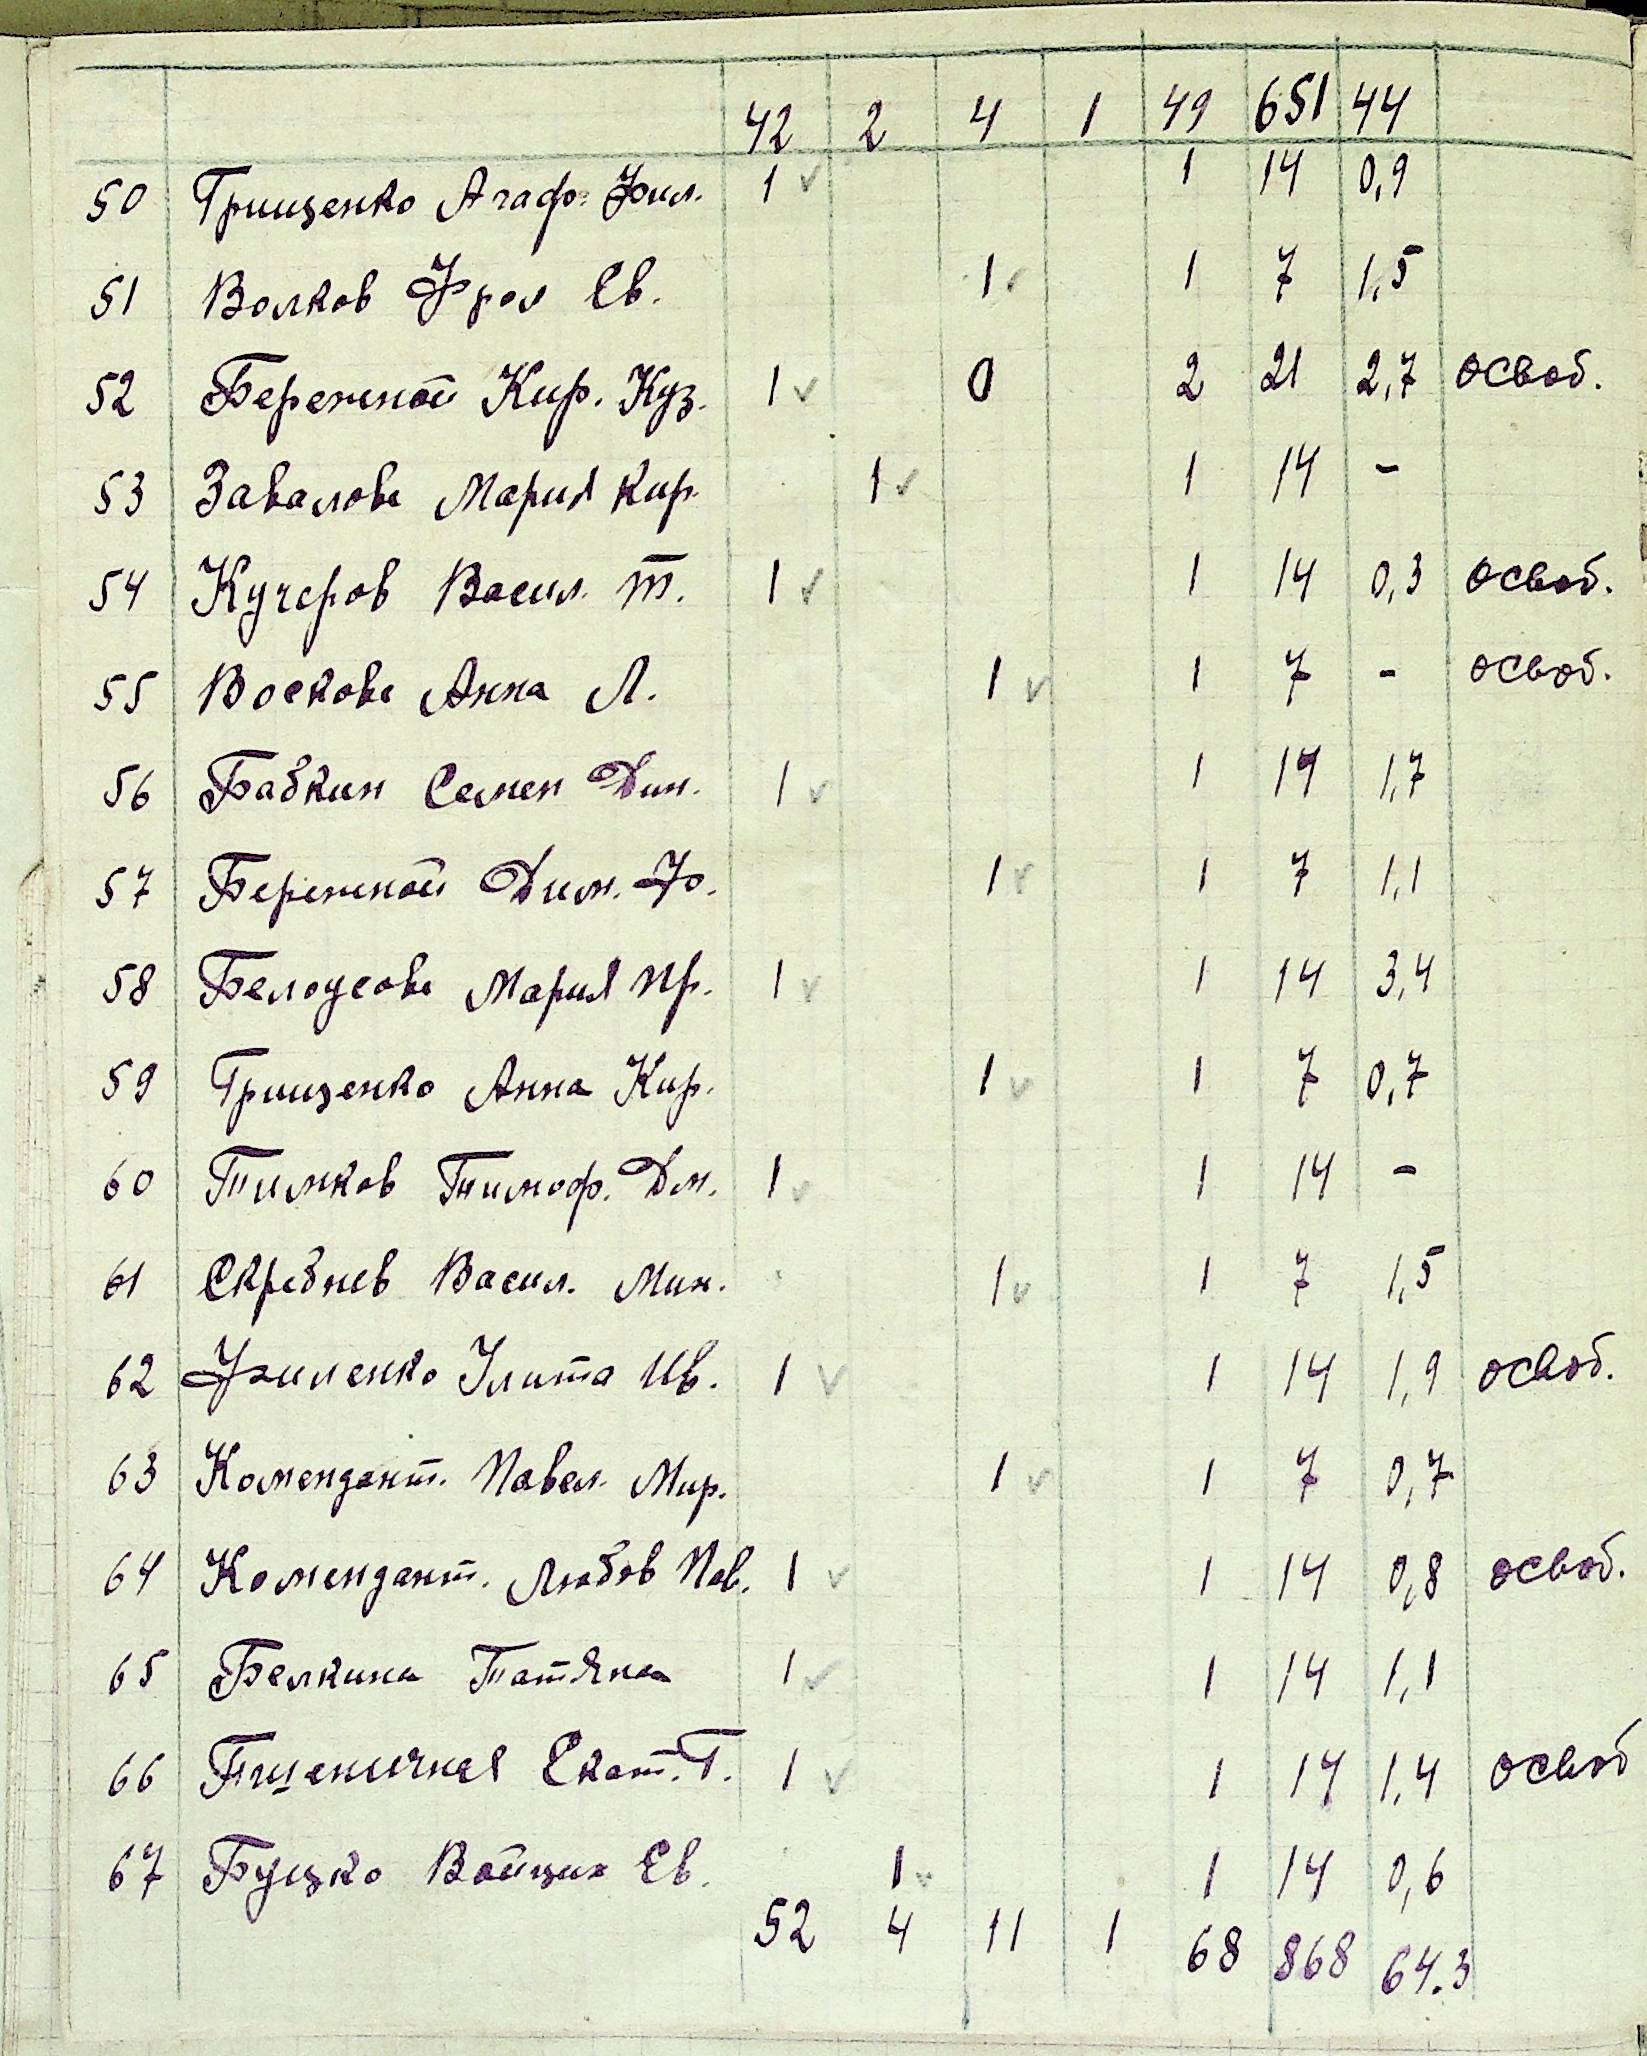 42 2 4 1 49 651 44
50 Грищенко Агаф. Фил. 1 ✓ 1 14 0,9
51 Волков Фрол Ев. 1 ✓ 1 7 1,5
52 Бережной Кир. Куз. 1 ✓ 0 2 21 2,7 освоб.
53 Завалова Мария Кир. 1 ✓ 1 14 -
54 Кучеров Васил. Т. 1 ✓ 1 14 0,3 освоб.
55 Воскова Анна Л. 1 ✓ 1 7 - освоб.
56 Бабкин Семен Дан. 1 ✓ 1 14 1,7
57 Бережной Дим. Ф. 1 ✓ 1 7 1,1
58 Белоусова Мария Пр. 1 ✓ 1 14 3,4
59 Грищенко Анна Кир. 1 ✓ 1 7 0,7
60 Тимков Тимоф. Дм. 1 ✓ 1 14 -
61 Скребнев Васил. Мих. 1 ✓ 1 7 1,5
62 Филенко Улита Ив. 1 ✓ 1 14 1,9 освоб.
63 Комендант. Павел. Мир. 1 ✓ 1 7 0,7
64 Комендант. Любов Пав. 1 ✓ 1 14 0,8 освоб.
65 Белкина Татяна 1 ✓ 1 14 1,1
66 Пшеничная Екат. Т. 1 ✓ 1 14 1,4 освоб
67 Буцко Ев. 1 ✓ 1 14 0,6
52 4 11 1 68 868 64.3